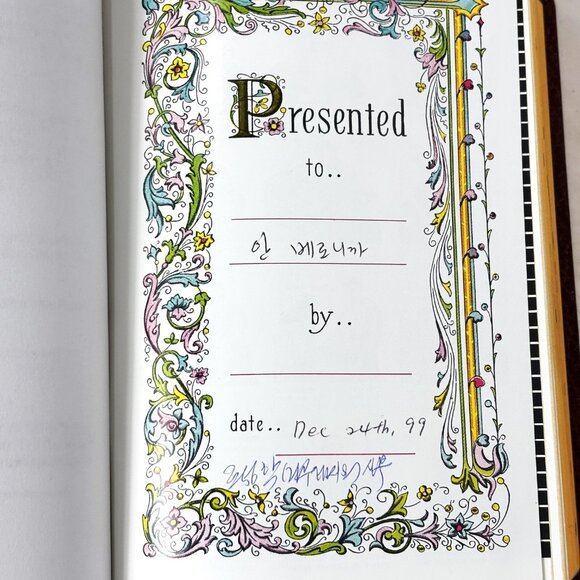 Presented
to..
안 베로니까
by..
date.. Dec 24th, 99